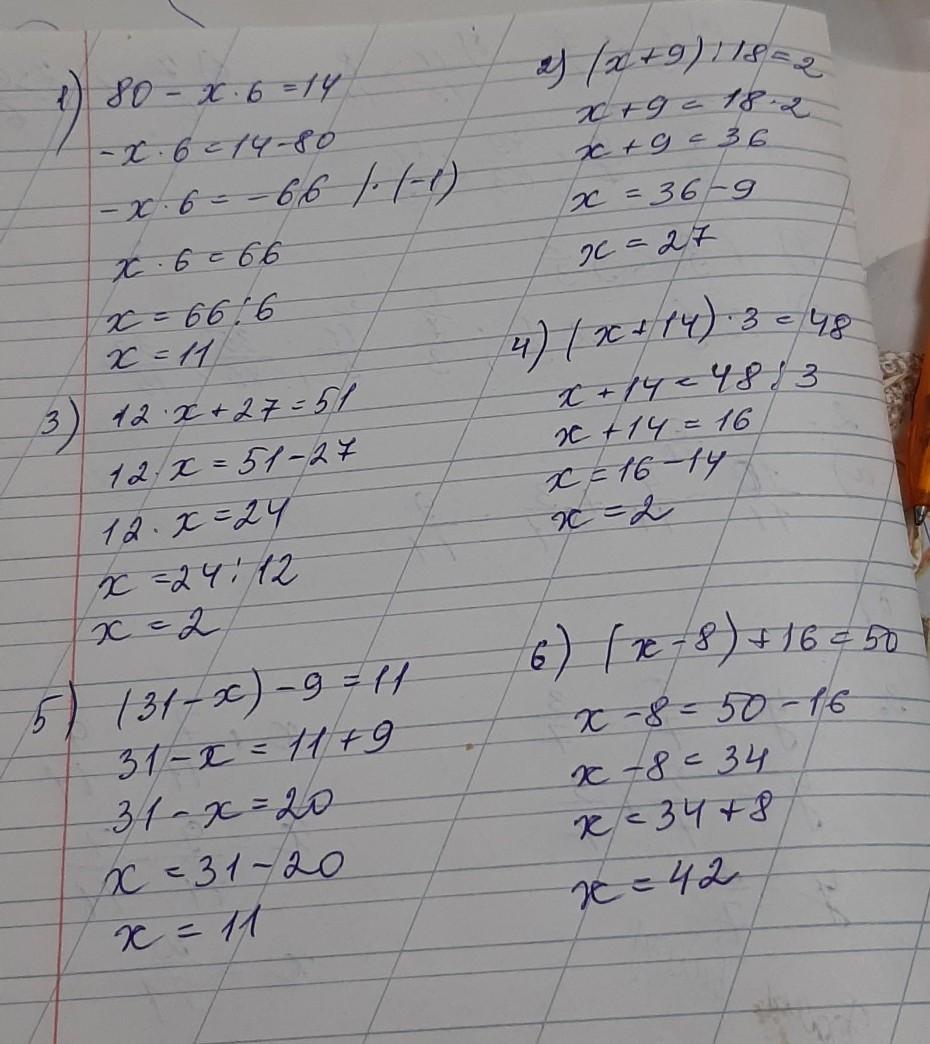 1) 80 - x · 6 = 14
-x · 6 = 14 - 80
-x · 6 = -66 / · (-1)
x · 6 = 66
x = 66 : 6
x = 11
2) (x + 9) : 18 = 2
x + 9 = 18 · 2
x + 9 = 36
x = 36 - 9
x = 27
3) 12 · x + 27 = 51
12 · x = 51 - 27
12 · x = 24
x = 24 : 12
x = 2
4) (x + 14) · 3 = 48
x + 14 = 48 : 3
x + 14 = 16
x = 16 - 14
x = 2
5) (31 - x) - 9 = 11
31 - x = 11 + 9
31 - x = 20
x = 31 - 20
x = 11
6) (x - 8) + 16 = 50
x - 8 = 50 - 16
x - 8 = 34
x = 34 + 8
x = 42